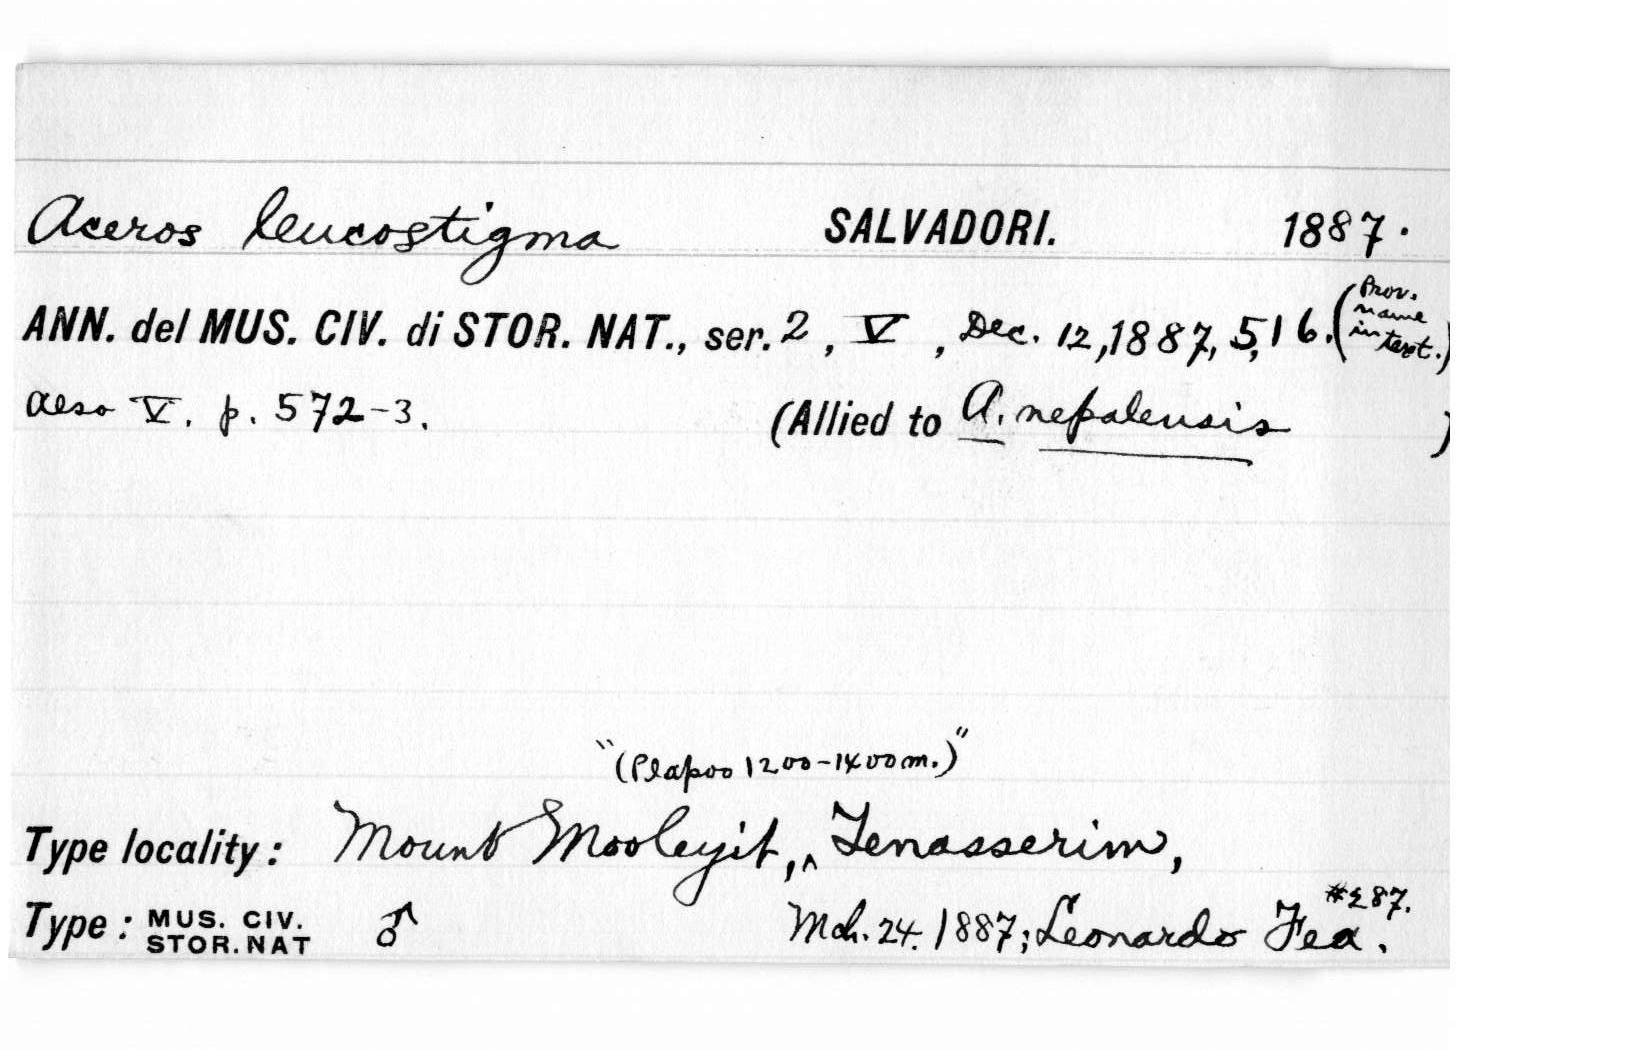 Aceros leucostigma SALVADORI. 1887.
ANN. del MUS. CIV. di STOR. NAT., ser. 2, V, Dec. 12, 1887, 516. (Prov. name in text.)
also V. p. 572-3. (Allied to A. nepalensis )
"(Plapoo 1200-1400m.)"
Type locality: Mount Mooleyit, ^ Tenasserim,
#287.
Type: MUS. CIV. STOR. NAT ♂ Mch. 24. 1887; Leonardo Fea.